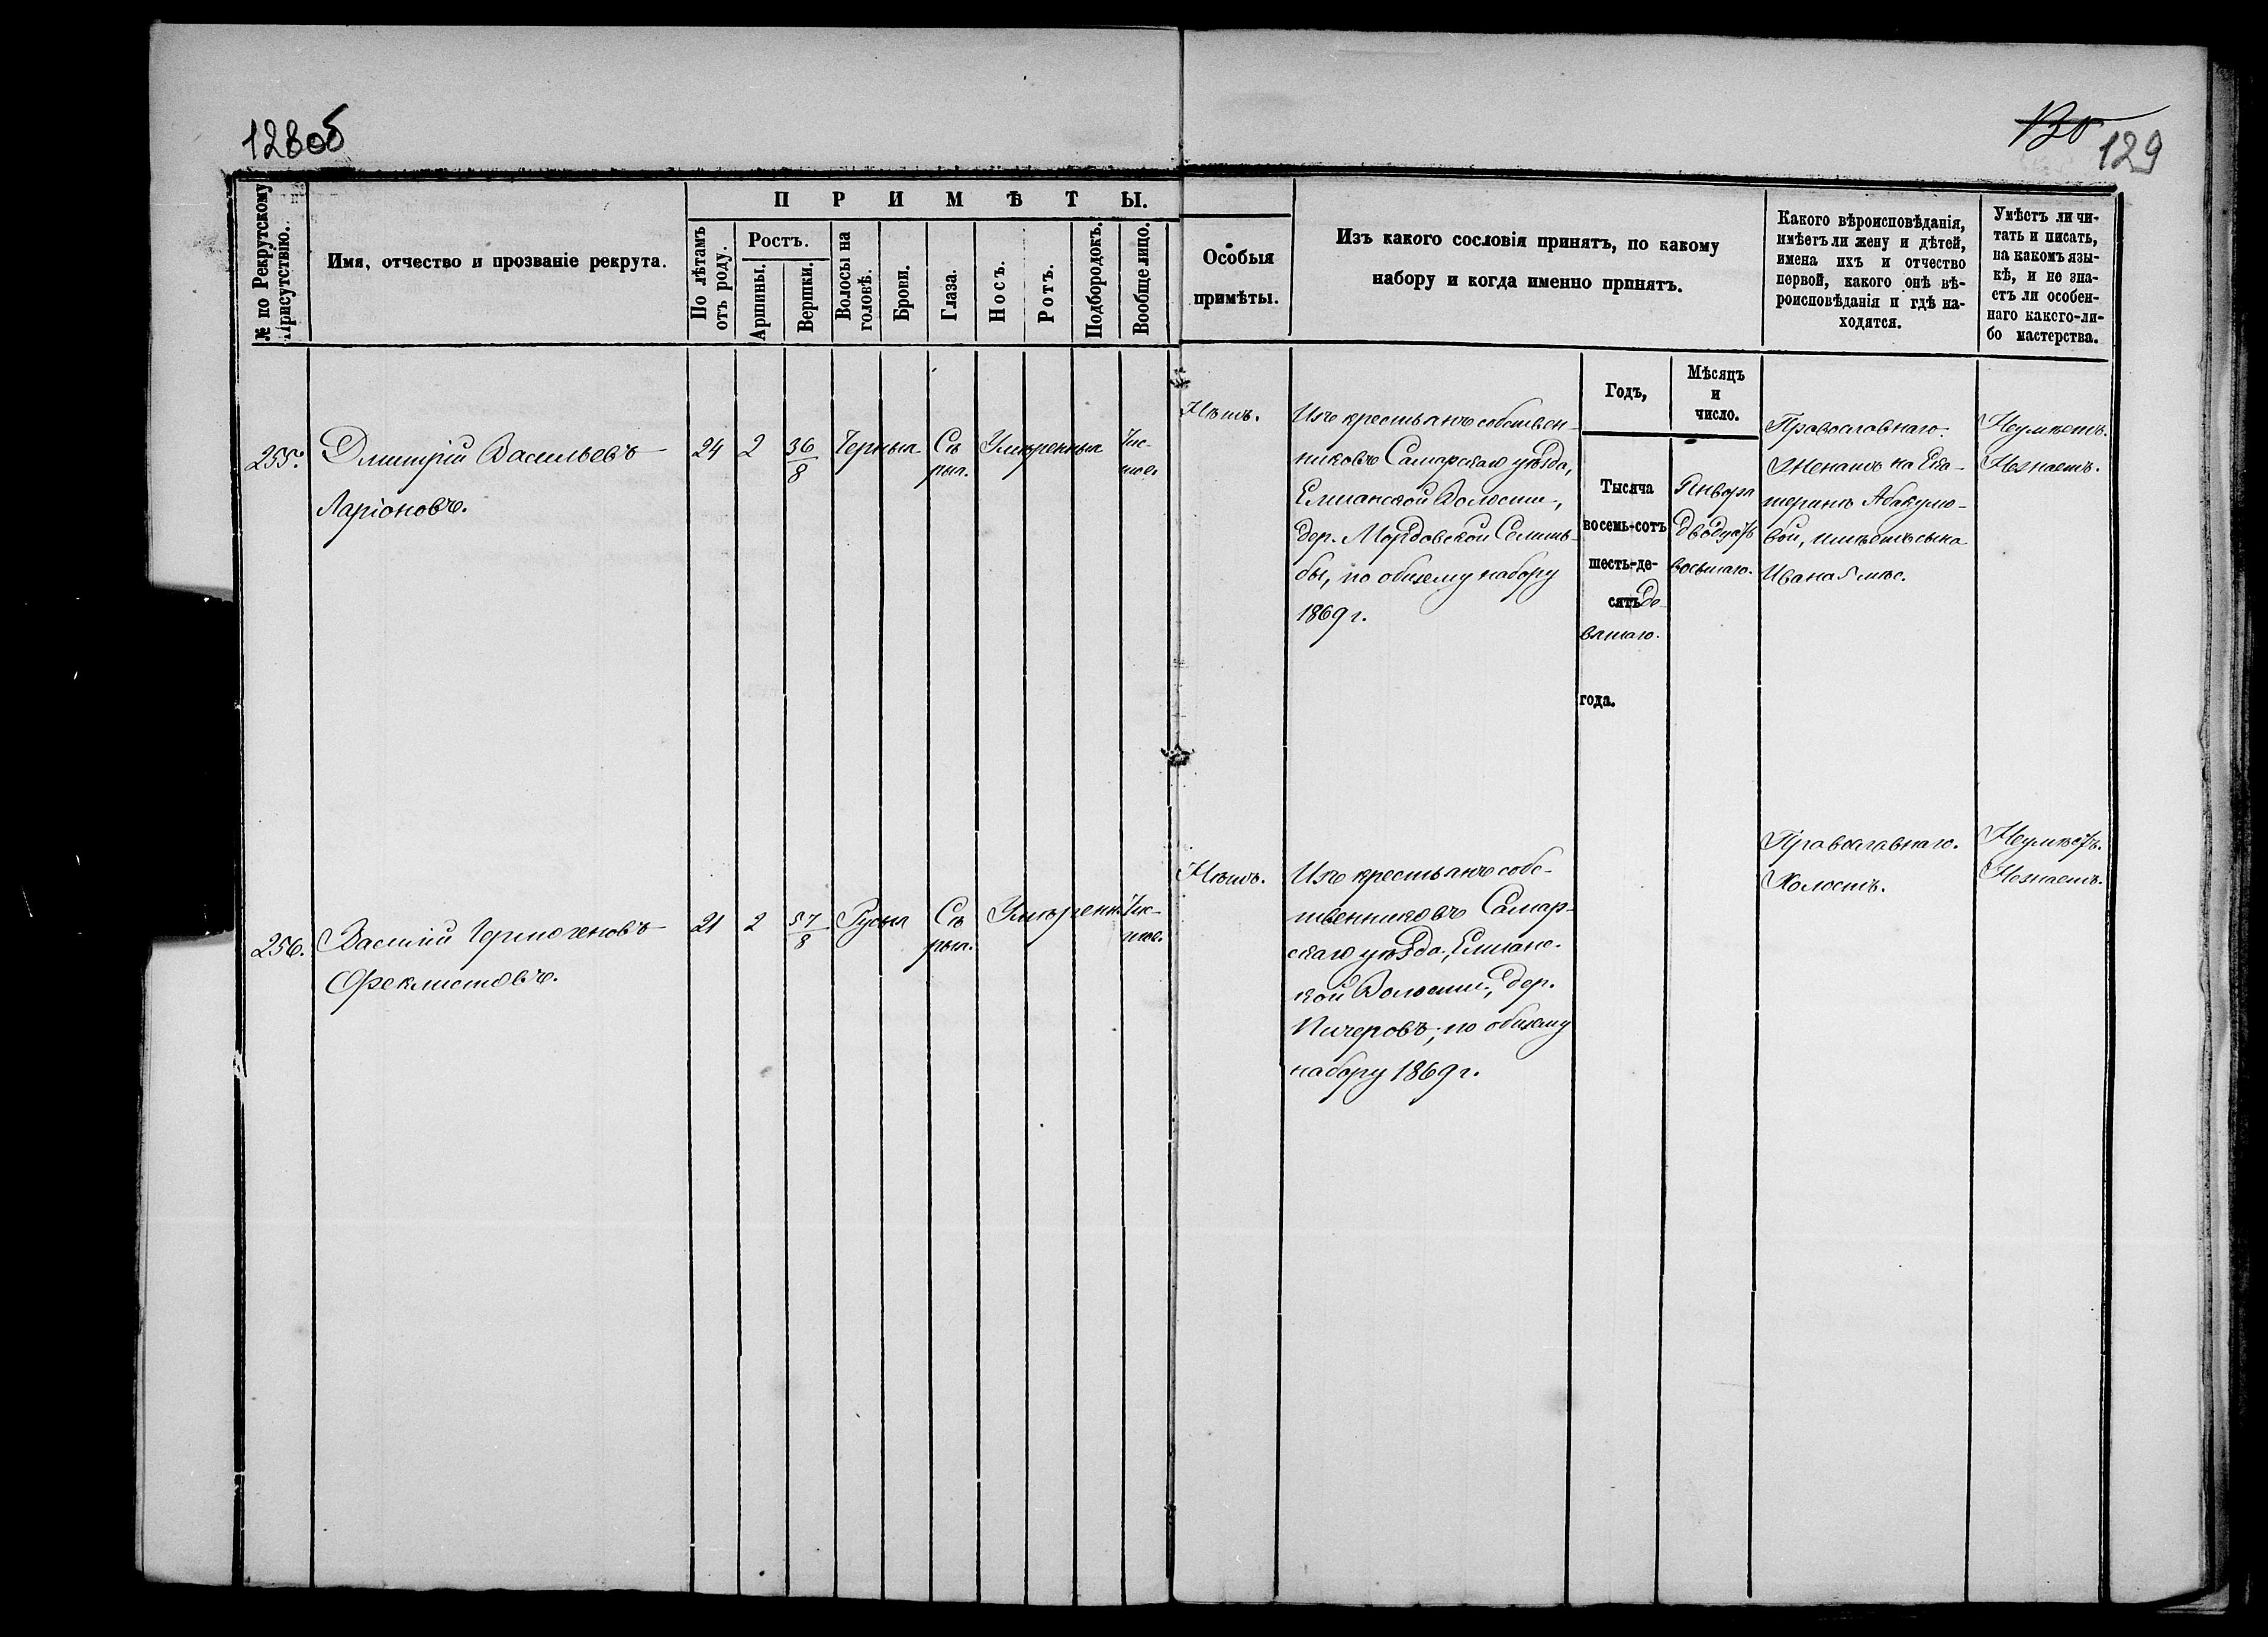 128об
130 129
№ по Рекрутскому Присутствію.
Имя, отчество и прозваніе рекрута.
ПРИМѢТЫ.
По лѣтамъ отъ роду.
Ростъ.
Аршины.
Вершки.
Волосы на головѣ.
Брови.
Глаза.
Носъ.
Ротъ.
Подбородокъ.
Вообще лицо.
Особыя
примѣты.
Изъ какого сословія принятъ, по какому
набору и когда именно принятъ.
Какого вѣроисповѣданія,
имѣетъ ли жену и дѣтей,
имена ихъ и отчество
первой, какого онѣ вѣ-
роисповѣданія и гдѣ на-
ходятся.
Умѣетъ ли чи-
тать и писать,
на какомъ язы-
кѣ, и не зна-
етъ ли особен-
наго какого-ли-
бо мастерства.
Годъ,
Мѣсяцъ
и
число.
255.
Дмитрій Васильевъ
Ларіоновъ.
24
2
36/8
Черныя
Сѣ
рыя.
Умѣренныя
Чис-
тое.
Нѣтъ.
Изъ крестьянъ собствен-
никовъ Самарскаго уѣзда,
Елшанской Волости,
дер. Мордовской Селить-
бы, по общему набору
1869 г.
Тысяча
восемь-сотъ
шесть-де-
сятъ де-
вятаго.
года.
Января
двадцать
восьмаго.
Православнаго.
Женатъ на Ека-
теринѣ Абакумо-
вой, имѣетъ сына
Ивана 5 мѣс.
Неумѣетъ.
Незнаетъ.
256.
Василій Гермогеновъ
Феклистовъ.
21
2
57/8
Русыя
Сѣ
рыя.
Умѣрен.
Чис-
тое.
Нѣтъ.
Изъ крестьянъ собс-
твенниковъ Самар-
скаго уѣзда, Елшанс-
кой Волости, дер.
Пичеровъ, по общему
набору 1869 г.
Православнаго.
Холостъ.
Неумѣетъ.
Незнаетъ.